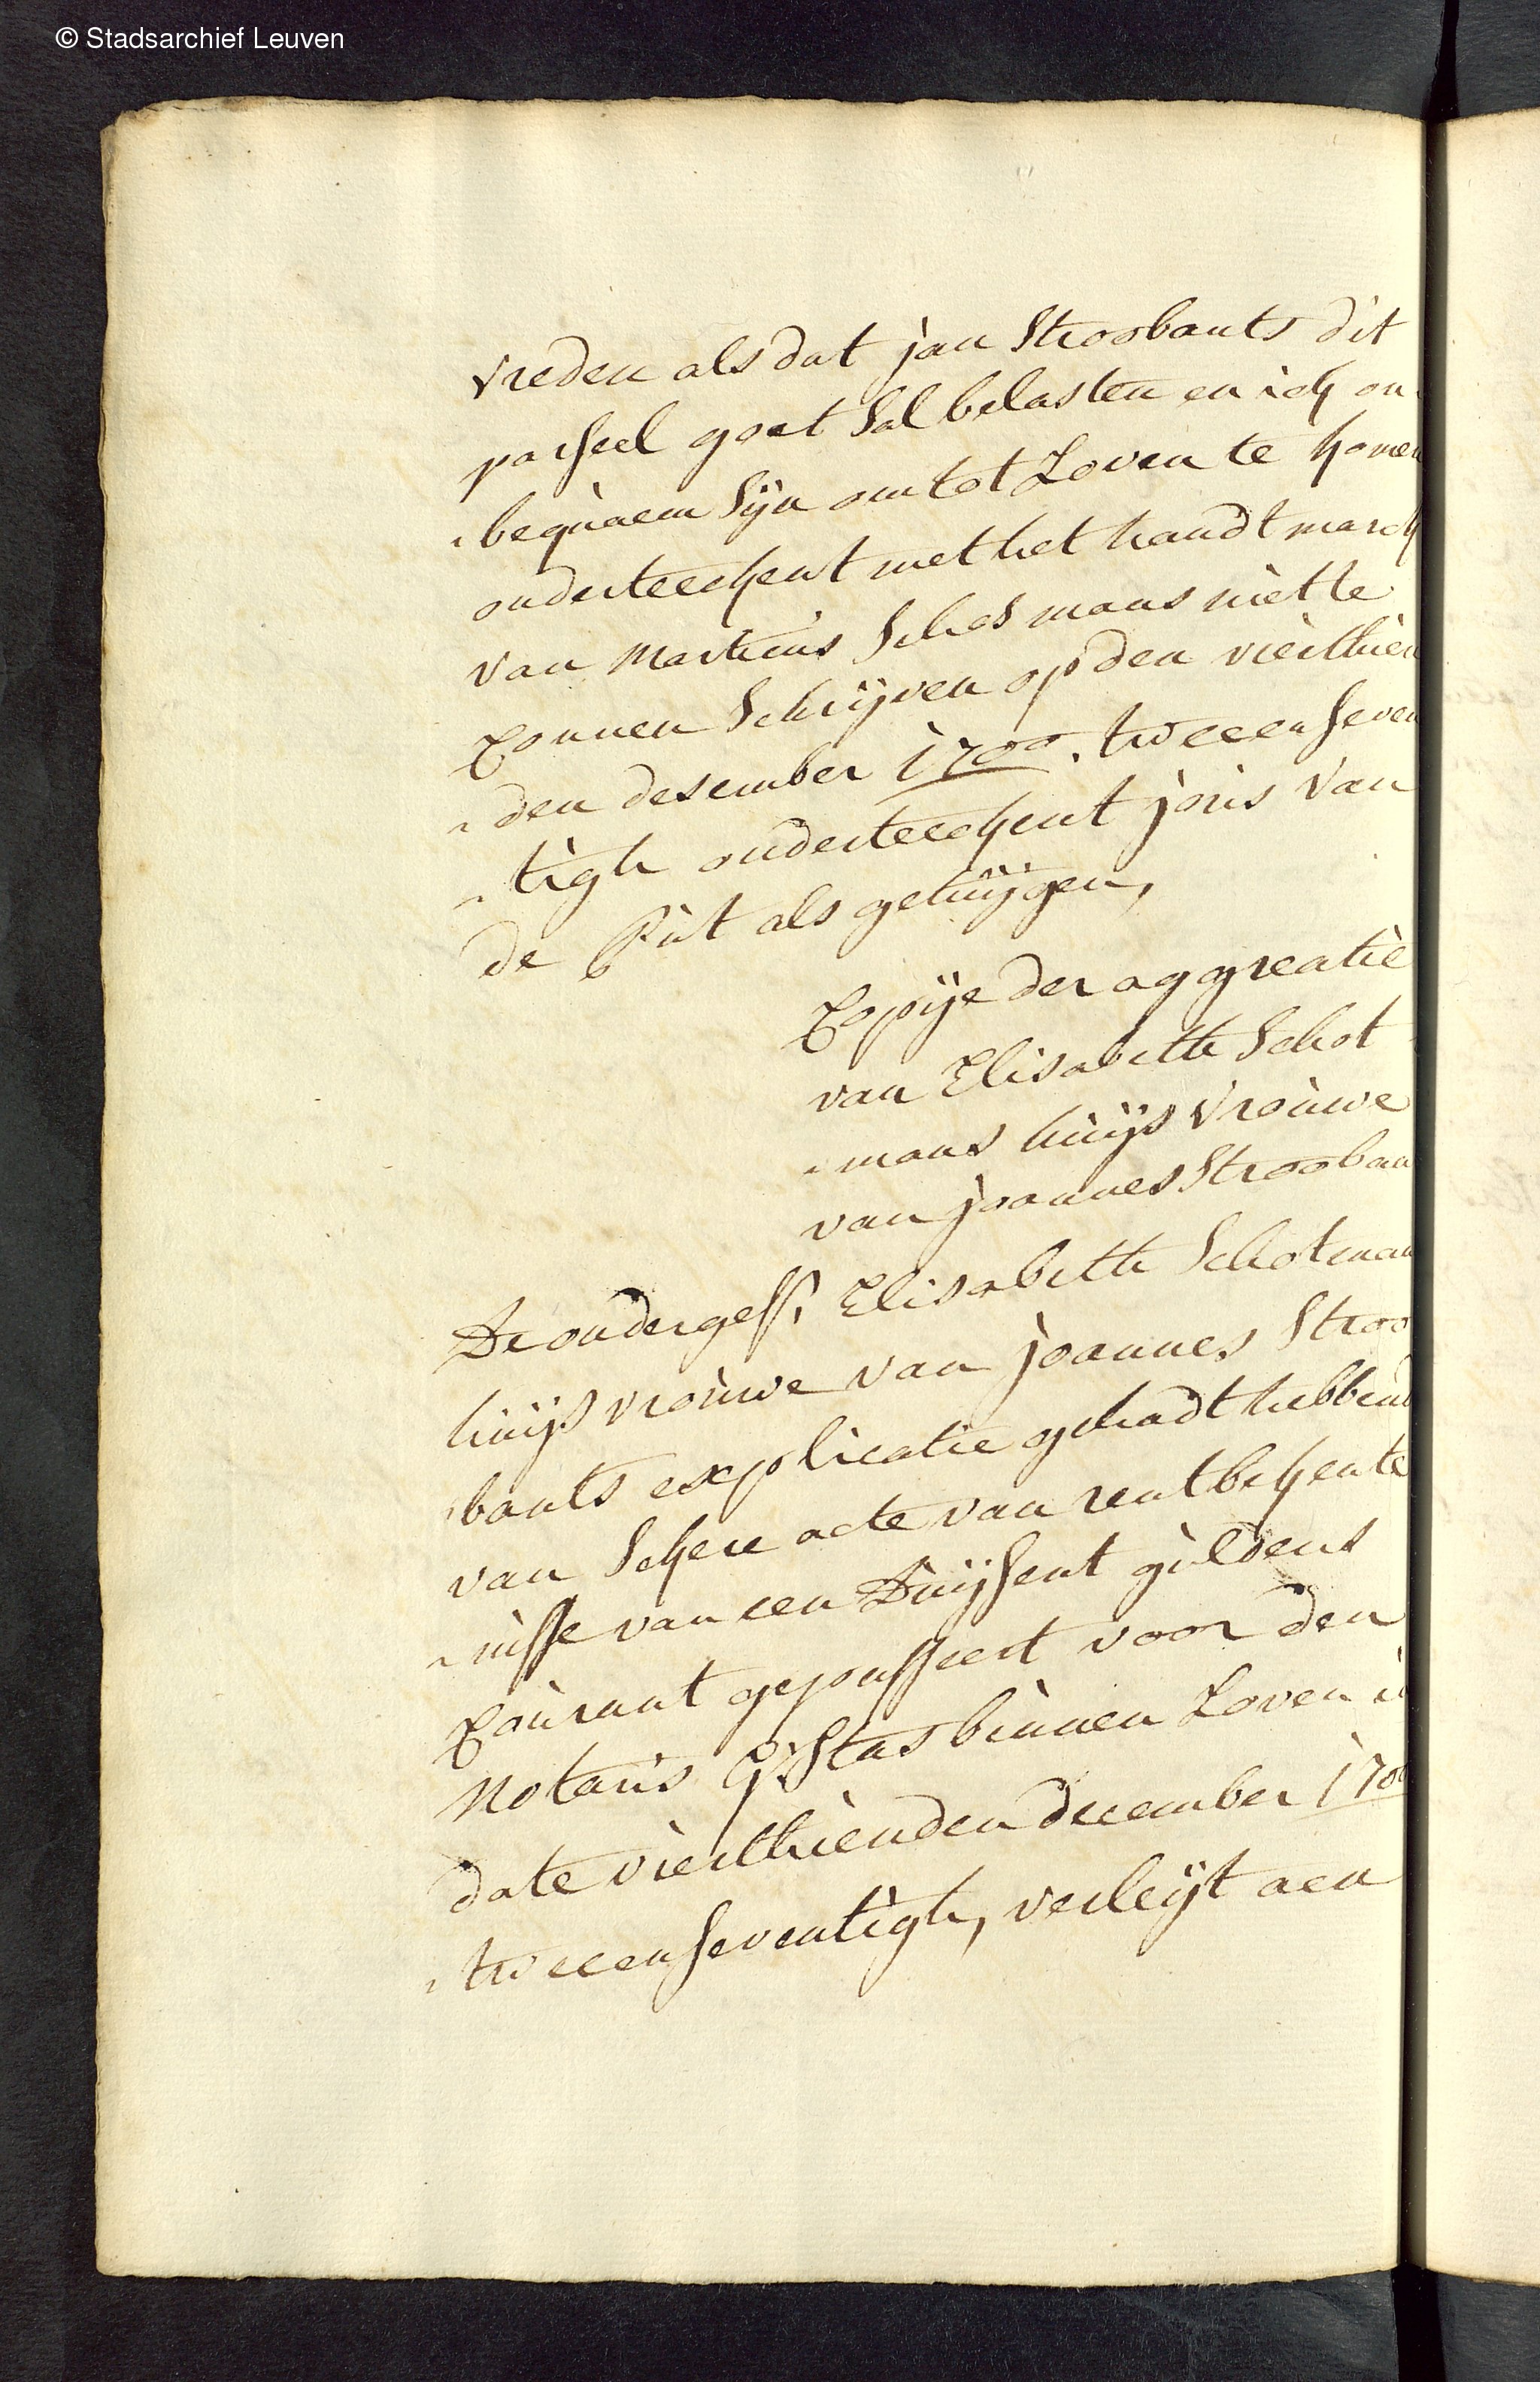 © Stadsarchief Leuven
vreden als dat jan Stroobants dit
parseel goet sal belasten en ick on-
-bequaem sijn om tot Loven te komen
onderteekent met het handt marck
van Martinus Schosmans niet te
Connen Schrijven op den vierthien
-den desember 1700. tweeenseven
-tigh onderteekent joris van
de Put als getuijgen,
Copije der aggreatie
van Elisabeth Schot
-mans huijs vrouwe
van joannes Strooban
De ondergess. Elisabeth Schotman
huijs vrouwe van joannes Stroo
-bants explicatie gehadt hebbend
van Sekere acte van rentbekente
-nisse van een Duijsent guldens
Courant gepasseert voor den
Notaris G: Stas binnen Loven i
date vierthienden december 170
-tweeenseventigh, verleijt aen